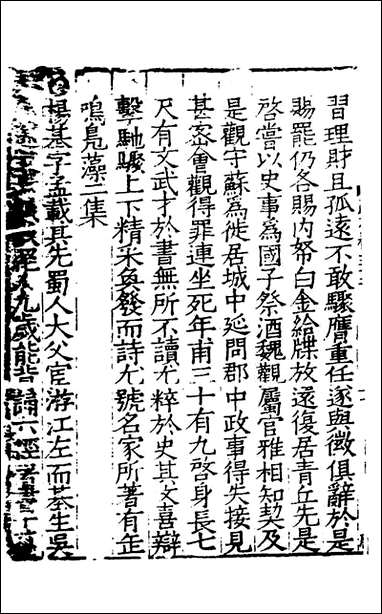 習理財且孤遠不敢驟膺重任遂與徽俱辭於是
賜罷仍各賜内帑白金給牒放遠復居青丘先是
啓嘗以史事為國子祭酒魏觀屬官雅相知契及
是觀守蘇為徙居城中延問郡中政事得失接見
甚密會觀得罪連坐死年甫三十有九啓身長七
尺有文武才於書無所不讀尤粹於史其文喜辯
擊馳騁上下精采煥發而詩尤號名家所著有缶
鳴鳧藻二集
楊基字孟載其先蜀人大父宦游江左而基生吳
九歲能背誦六經